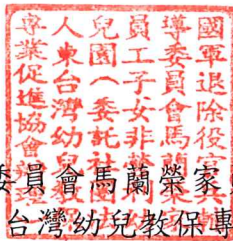 國軍退除役官兵輔
導委員會馬蘭榮
員工子女非營利
兒園(委託社團
人東台灣幼兒教
專業促進協會辦理
委員會馬蘭榮家
台灣幼兒教保專